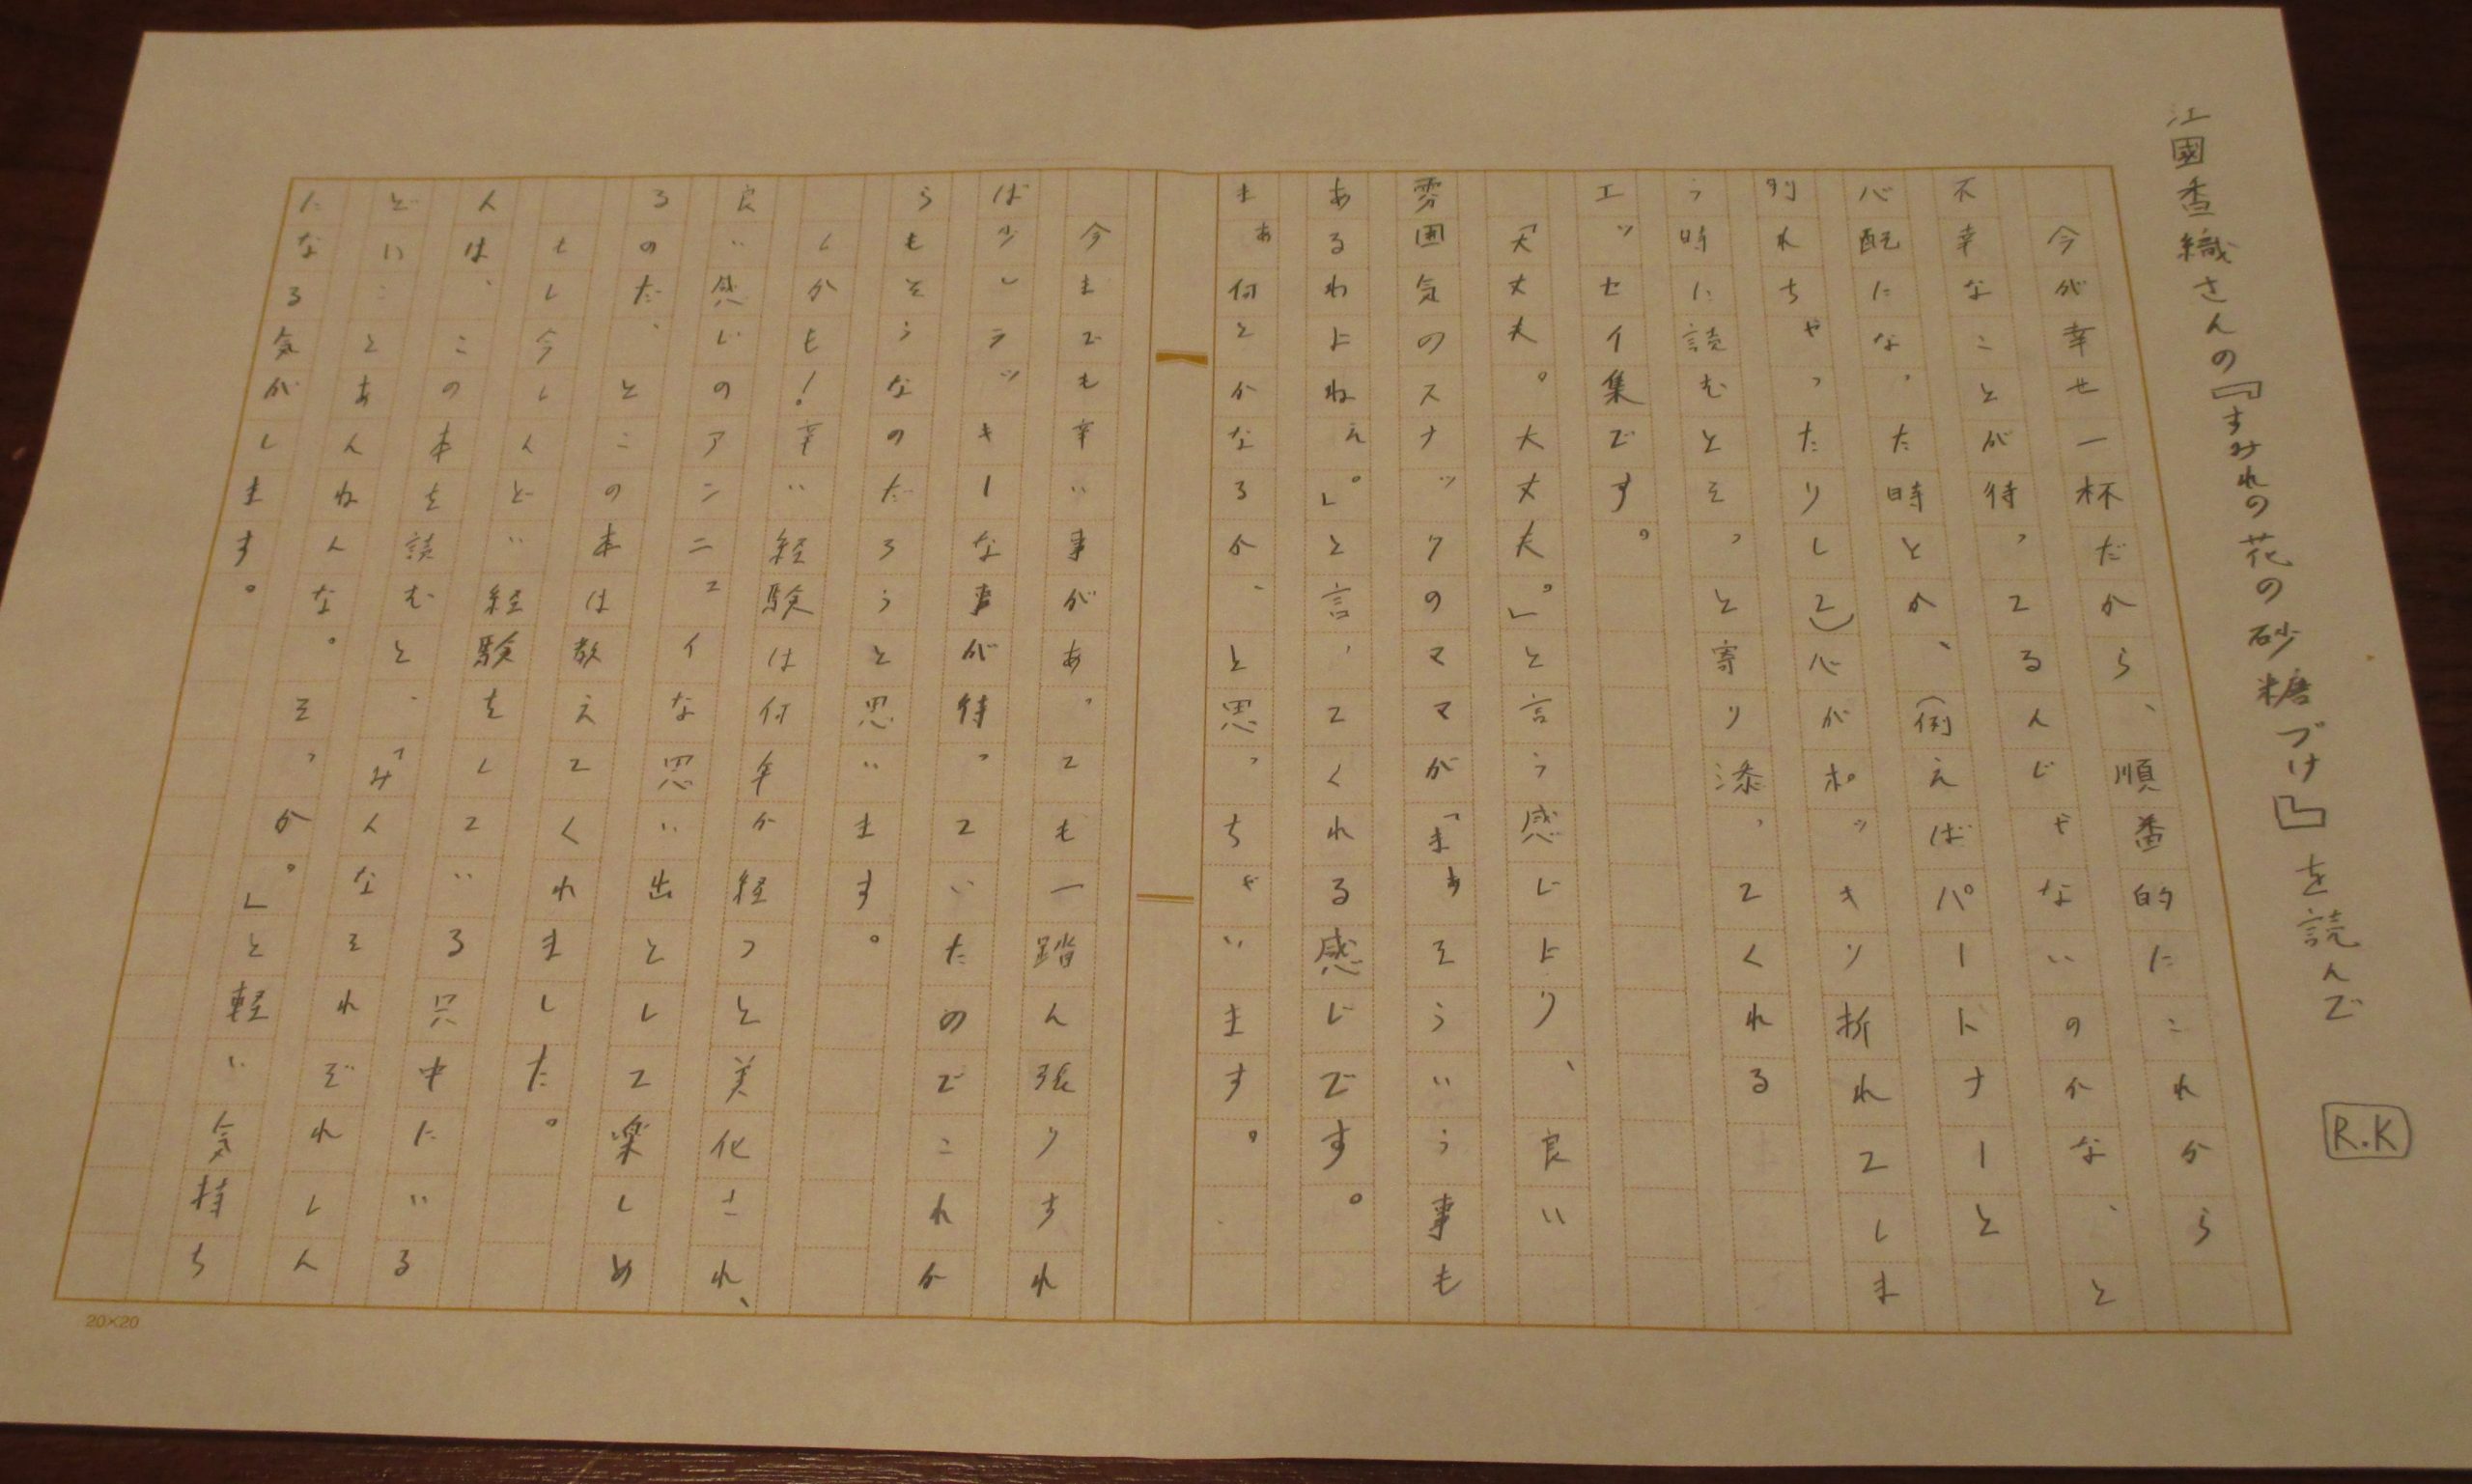 江國香織さんの『すみれの花の砂糖づけ』を読んで R.K
今が幸せ一杯だから、順番的にこれから
不幸なことが待ってるんじゃないのかな、と
心配になった時とか、（例えばパートナーと
別れちゃったりして）心がポッキリ折れてしま
う時に読むとそっと寄り添ってくれる
エッセイ集です。
「大丈夫。大丈夫。」と言う感じより、良い
雰囲気のスナックのママが「まぁそういう事も
あるわよねぇ。」と言ってくれる感じです。
まぁ何とかなるか、と思っちゃいます。
今までも辛い事があっても一踏ん張りすれ
ば少しラッキーな事が待っていたのでこれか
らもそうなのだろうと思います。
しかも！辛い経験は何年か経つと美化され、
良い感じのアンニュイな思い出として楽しめ
るのだ、とこの本は教えてくれました。
もし今しんどい経験をしている只中にいる
人は、この本を読むと、「みんなそれぞれしん
どいことあんねんな。そっか。」と軽い気持ち
になる気がします。
20×20